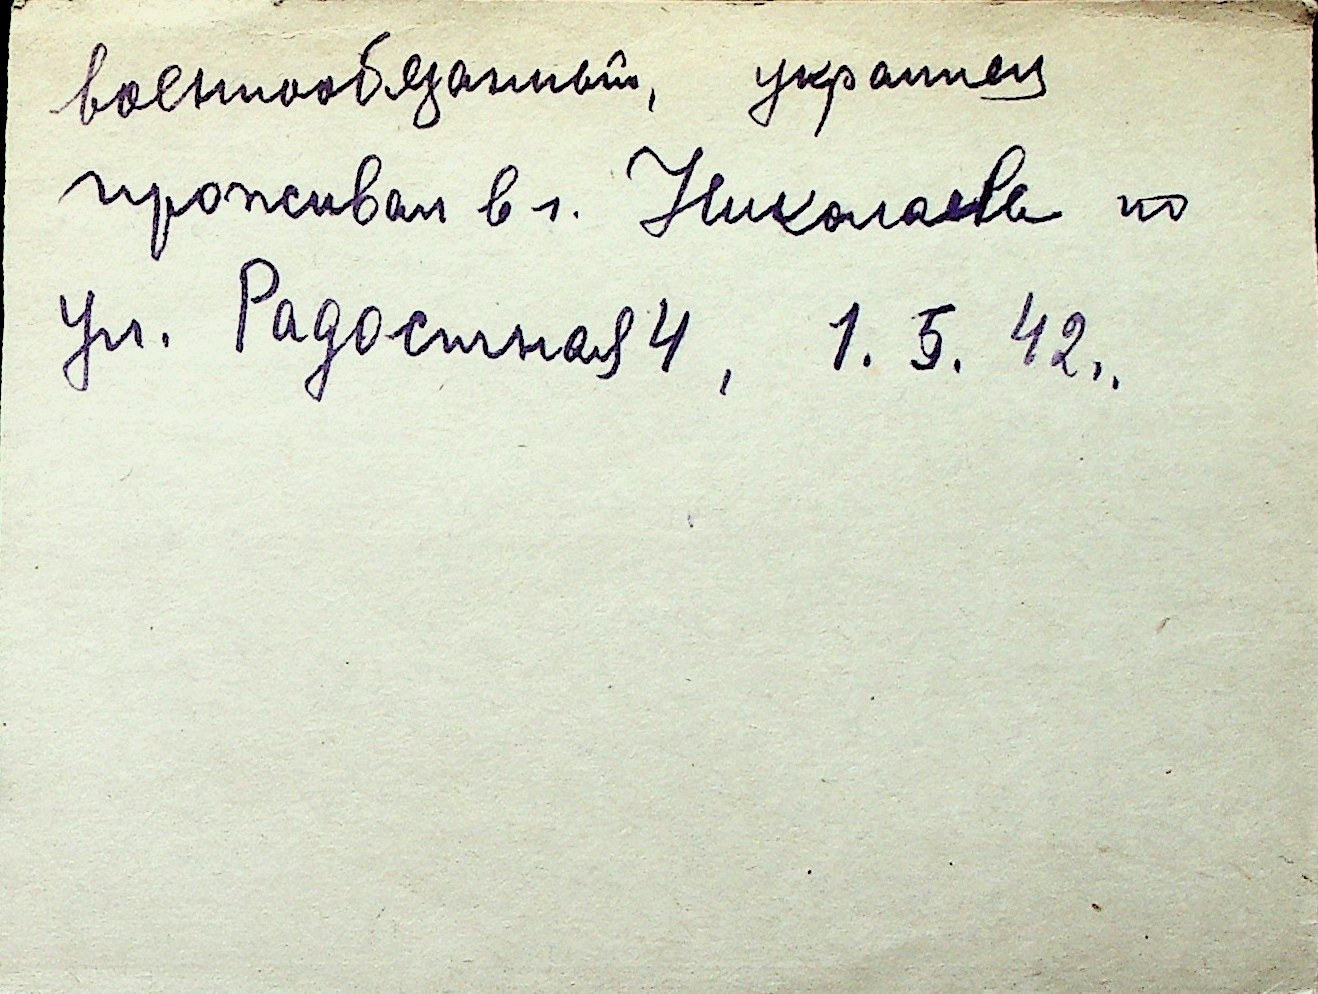 военнообязанный, украинец
проживал в г. Николаеве по
ул. Радостная 4, 1. 5. 42..